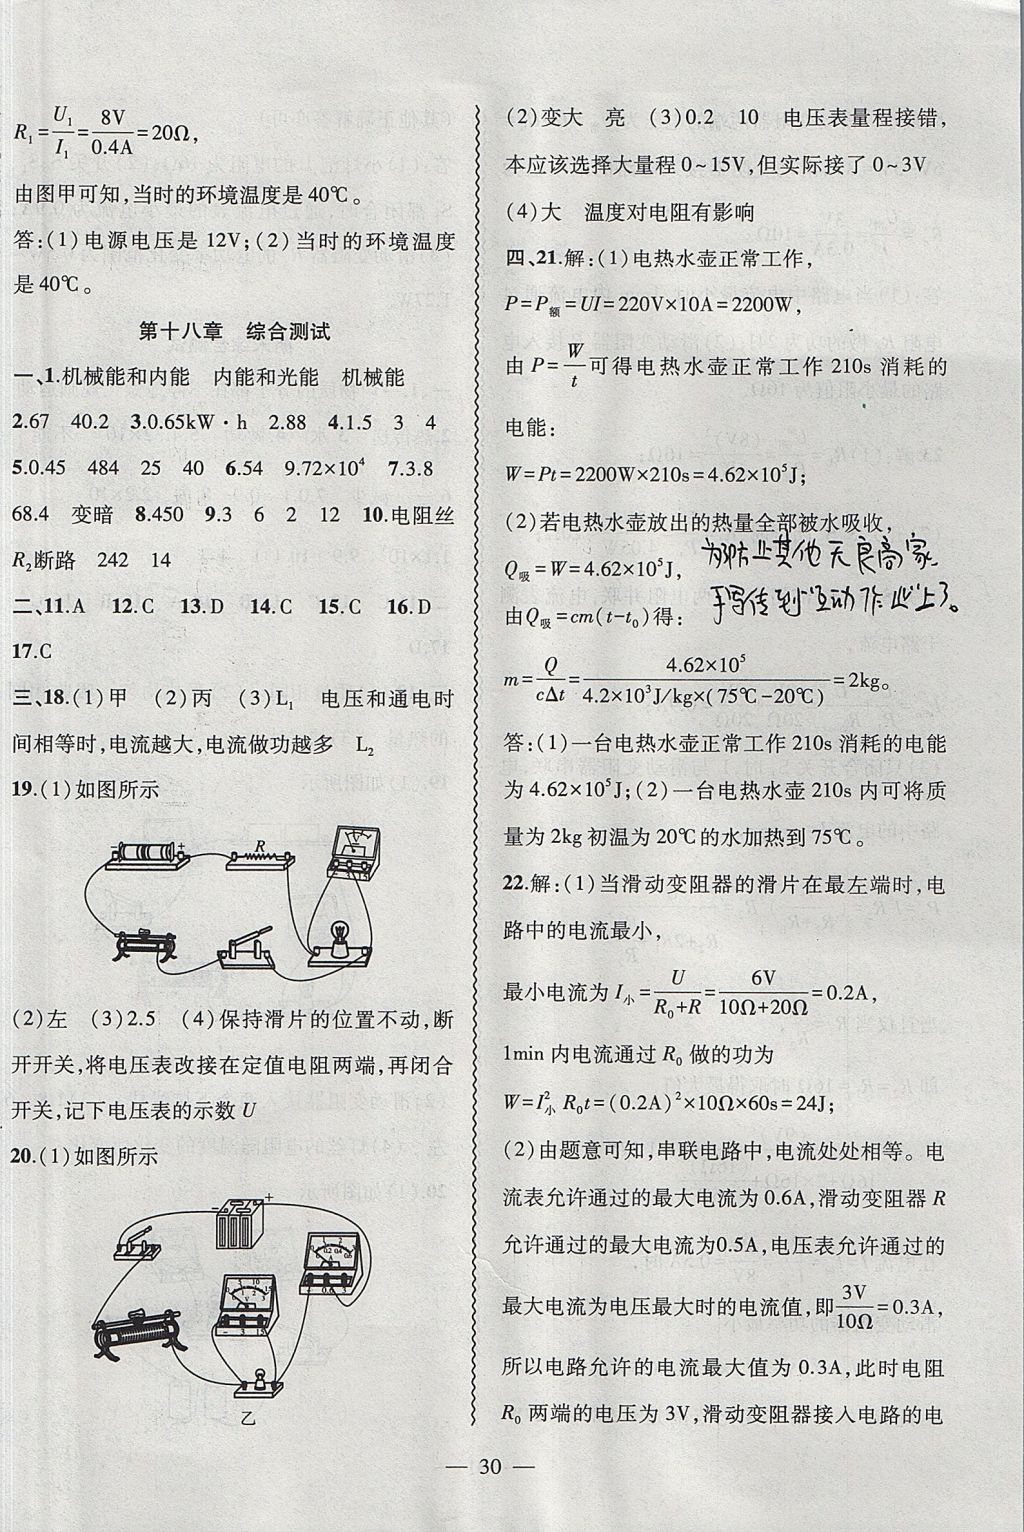 R₁=U₁/I₁=8V/0.4A=20Ω，
由图甲可知，当时的环境温度是40℃。
答：(1)电源电压是 12V；(2)当时的环境温度
是40℃。
第十八章　综合测试
一、1.机械能和内能　内能和光能　机械能
2.67　40.2　3.0.65kW·h　2.88　4.1.5　3　4
5.0.45　484　25　40　6.54　9.72×10⁴　7.3.8
68.4　变暗　8.450　9.3　6　2　12　10.电阻丝
R₂断路　242　14
二、11.A　12.C　13.D　14.C　15.C　16.D
17.C
三、18.(1)甲　(2)丙　(3)L₁　电压和通电时
间相等时，电流越大，电流做功越多　L₂
19.(1)如图所示
− + R
V
− 3 15
(2)左　(3)2.5　(4)保持滑片的位置不动，断
开开关，将电压表改接在定值电阻两端，再闭合
开关，记下电压表的示数 U
20.(1)如图所示
− +
A
− 0.6 3
V
− 3 15
乙
(2)变大　亮　(3)0.2　10　电压表量程接错，
本应该选择大量程 0~15V，但实际接了 0~3V
(4)大　温度对电阻有影响
四、21.解：(1)电热水壶正常工作，
P=P额=UI=220V×10A=2200W，
由 P=W/t可得电热水壶正常工作 210s 消耗的
电能：
W=Pt=2200W×210s=4.62×10⁵J；
(2)若电热水壶放出的热量全部被水吸收，
Q吸=W=4.62×10⁵J，
为防止其他无良商家
由Q吸=cm(t-t₀)得：
手写传到"互动作业"上了。
m=Q/cΔt=4.62×10⁵/4.2×10³J/kg×(75℃-20℃)=2kg。
答：(1)一台电热水壶正常工作 210s 消耗的电能
为 4.62×10⁵J；(2)一台电热水壶 210s 内可将质
量为 2kg 初温为 20℃的水加热到 75℃。
22.解：(1)当滑动变阻器的滑片在最左端时，电
路中的电流最小，
最小电流为 I小=U/R₀+R=6V/10Ω+20Ω=0.2A，
1min 内电流通过 R₀ 做的功为
W=I²小 R₀t=(0.2A)²×10Ω×60s=24J；
(2)由题意可知，串联电路中，电流处处相等。电
流表允许通过的最大电流为 0.6A，滑动变阻器 R
允许通过的最大电流为0.5A，电压表允许通过的
最大电流为电压最大时的电流值，即3V/10Ω=0.3A，
所以电路允许的电流最大值为 0.3A，此时电阻
R₀ 两端的电压为 3V，滑动变阻器接入电路的电
— 30 —